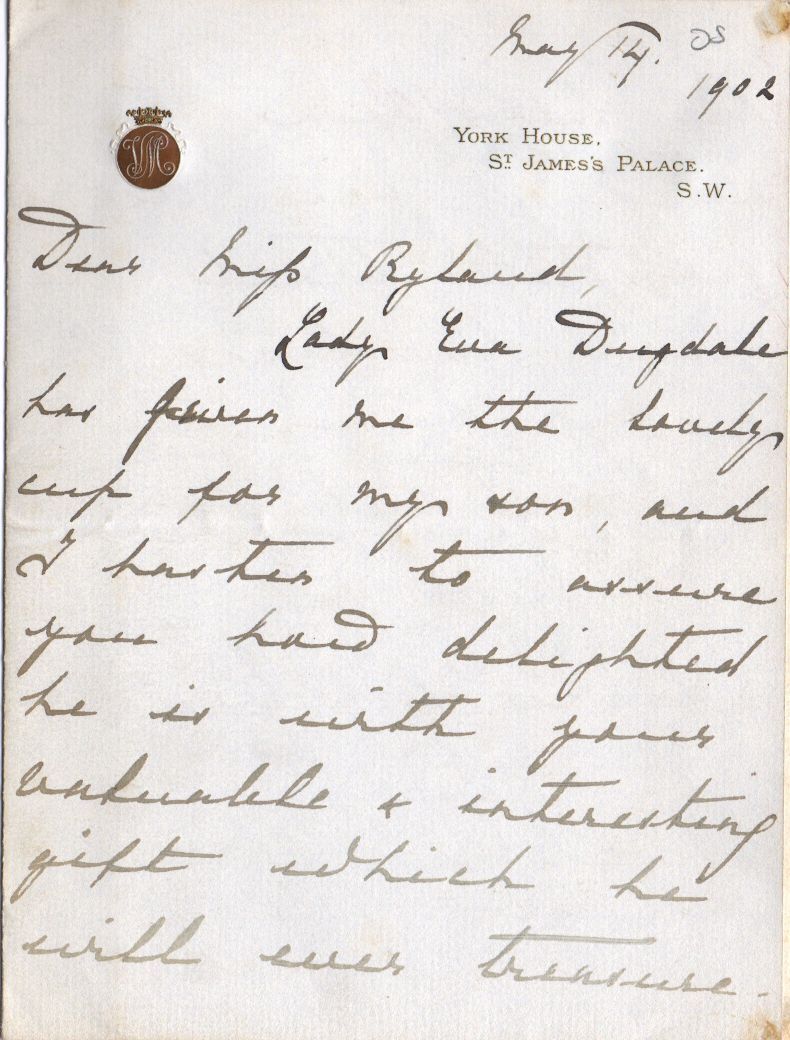 May 14.
1902
YORK HOUSE,
ST JAMES'S PALACE.
S.W.
Dear Miss Ryland,
Lady Eva Dugdale
has given me the lovely
cup for my son, and
I hasten to assure
you how delighted
he is with your
valuable & interesting
gift which he
will ever treasure.